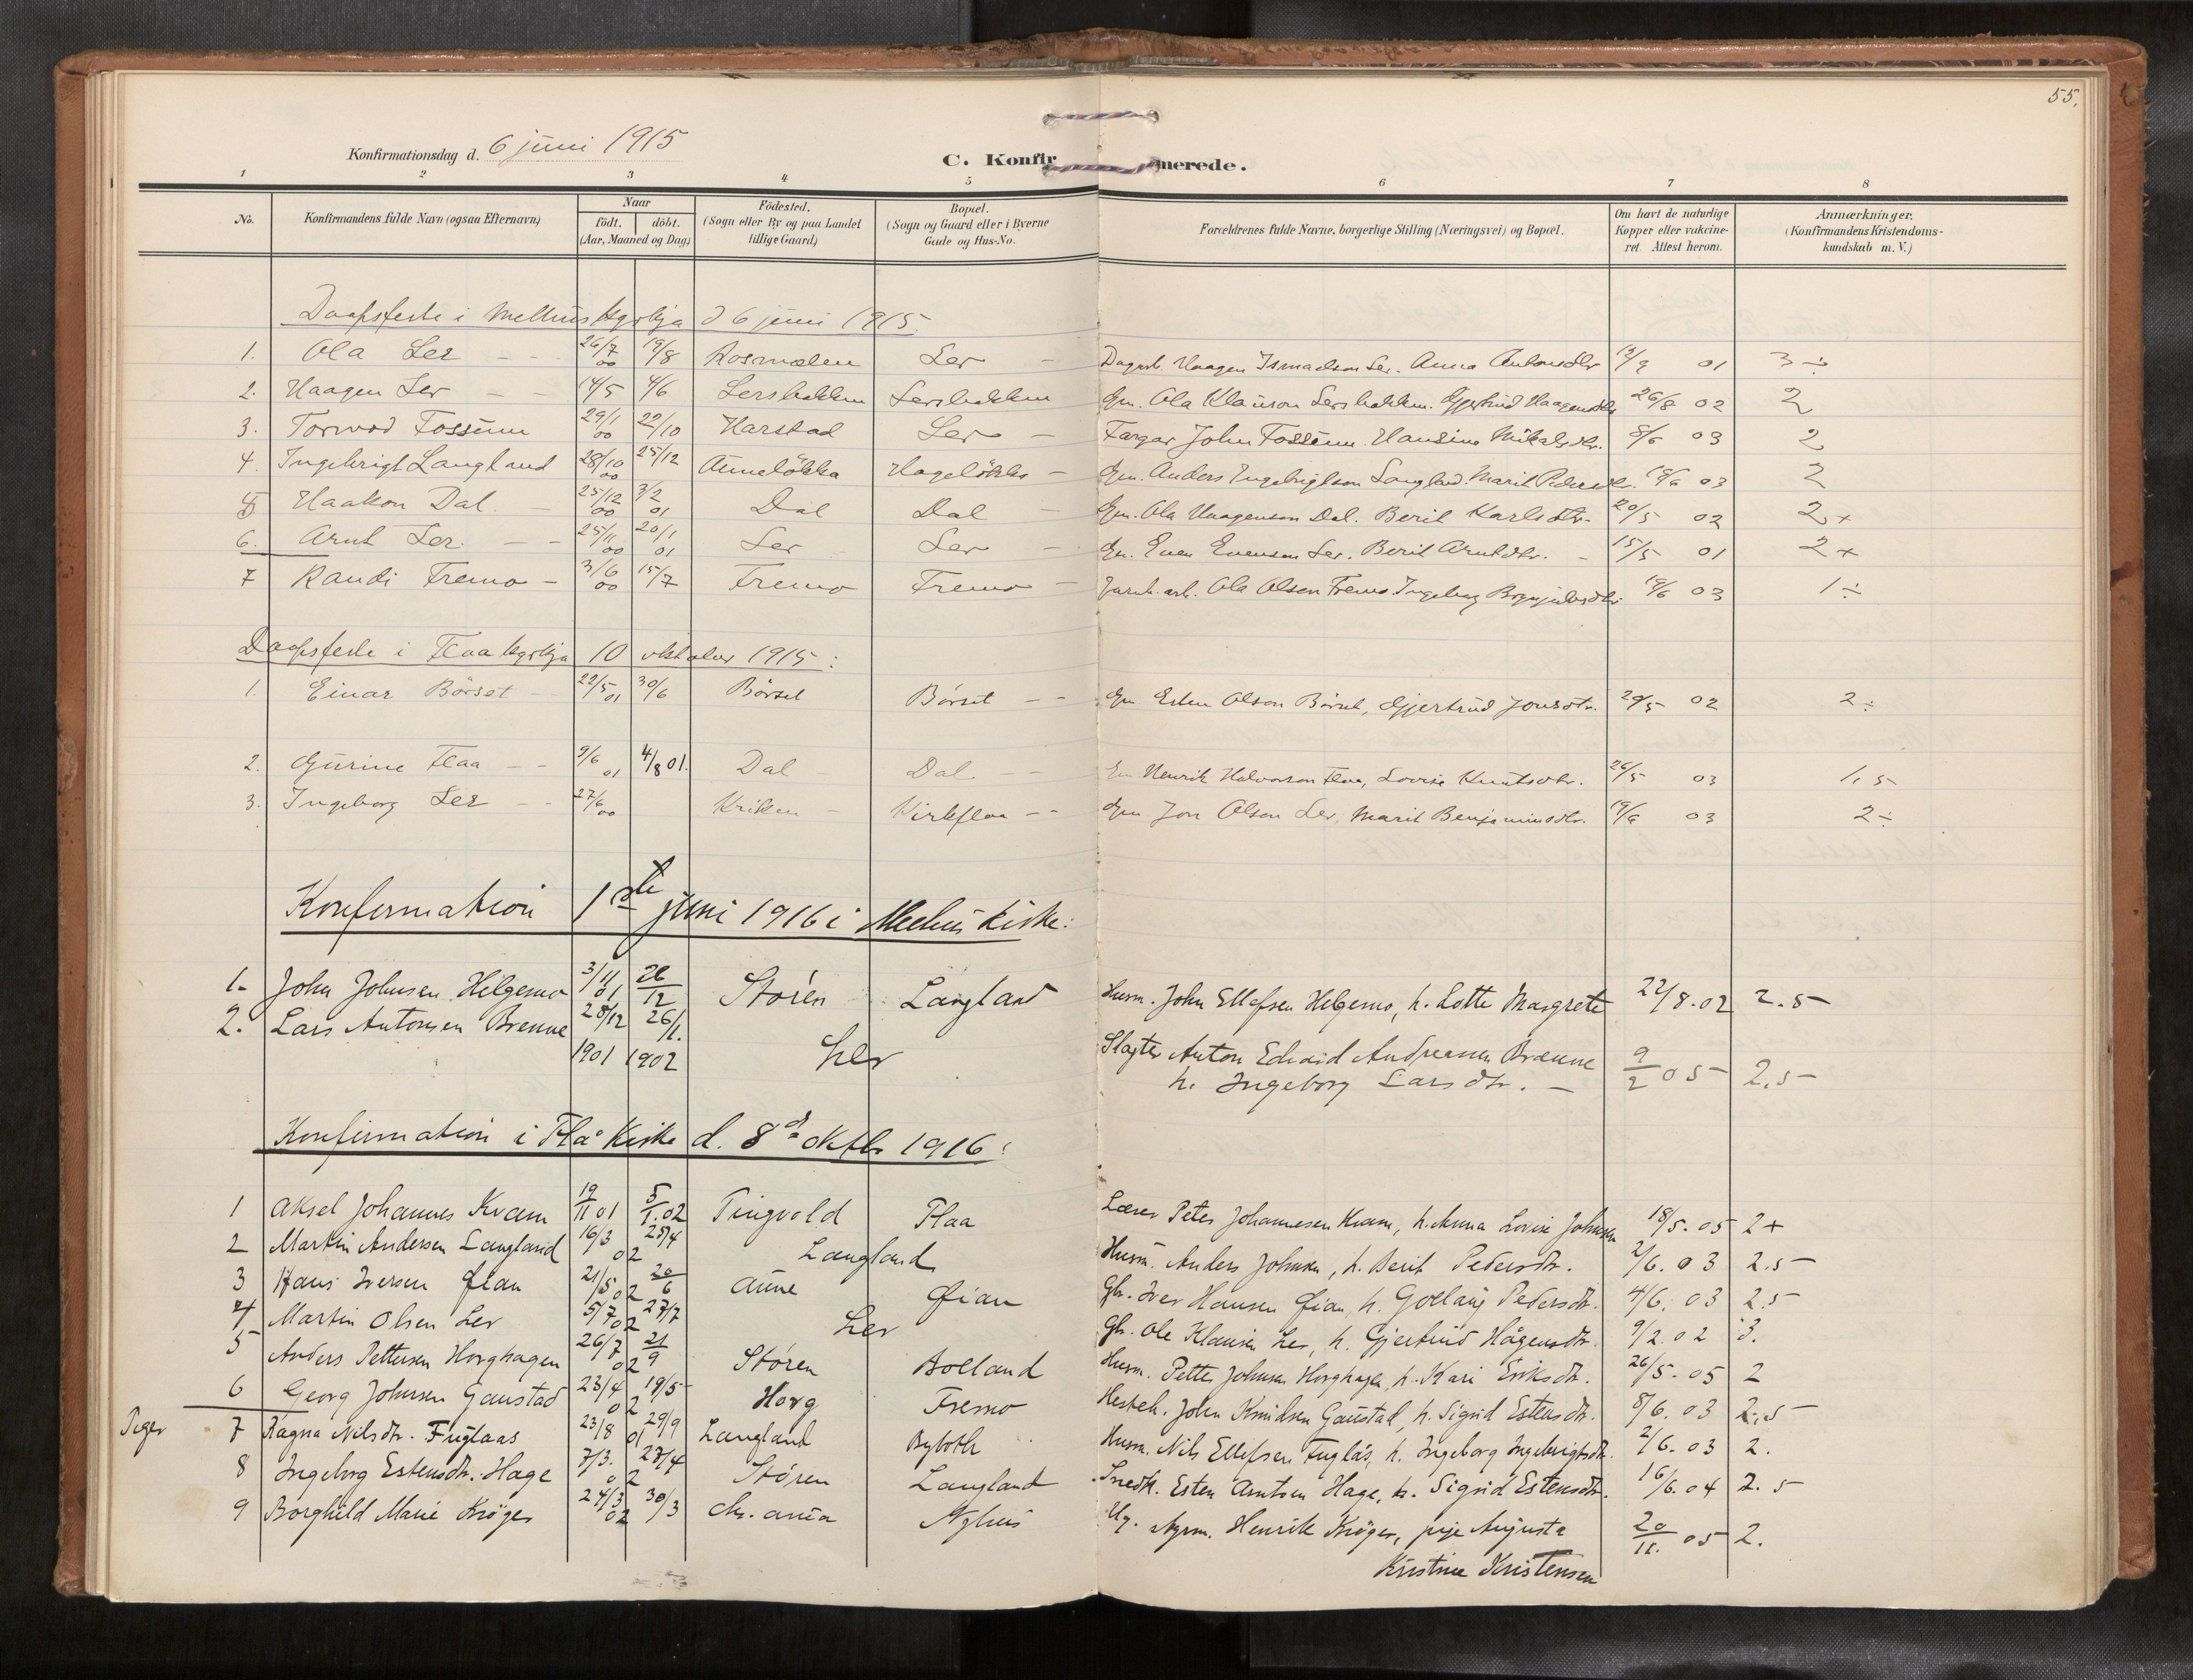 55.
Konfirmationsdag d. 6 juni 1915
C. Konfir merede.
1 2 3 4 5 6 7 8
No. Konfirmandens fulde Navn (ogsaa Efternavn) Naar født. døbt. (Aar, Maaned og Dag) Fødested. (Sogn eller By og paa Landet tillige Gaard) Bopæl. (Sogn og Gaard eller i Byerne Gade og Hus-No. Forældrenes fulde Navne, borgerlige Stilling (Næringsvei) og Bopæl. Om havt de naturlige Kopper eller vakcineret. Attest herom. Anmærkninger. (Konfirmandens Kristendomskundskab m. V.)
Daapsfeste i Melhus kyrkja d 6 juni 1915.
1. Ola Ler 26/7 00 19/8 Rosmælen Ler Haagen Ismaelson Ler. Anna Antonsdtr 01 3 ÷
2. Haagen Ler 14/5 4/6 Lersbakken Lersbakken Gm. Ola Klauson Lersbakken. Gjertrud Haagensdtr 26/8 02 2
3. Torvod Fossum 29/1 00 22/10 Harstad Ler Fargar John Fossum. Hansine Mikalsdtr. 8/6 03 2
4. Ingebrigt Langland 28/10 00 25/12 Auneløkka Hageløkka Gm. Anders Ingebrigtson Langland. Marit Pedersdtr. 19/6 03 2
5 Haakon Dal. 25/12 00 3/2 01 Dal Dal Gm. Ola Haagenson Dal. Berit Karlsdtr. 20/5 02 2+
6. Arnt Ler. 25/11 00 20/1 01 Ler Ler Gm. Even Evenson Ler. Berit Arntsdtr. 15/5 01 2+
7 Randi Fremo 3/6 00 15/7 Fremo Fremo Jarnb. arb. Ola Olsen Fremo. Ingeborg 19/6 03 1 ÷
Daapsfeste i Flaa kyrkja 10 oktober 1915:
1. Einar Børset 22/5 01 30/6 Børset Børset Gm Esten Olson Børset, Gjertrud Jonsdtr. 29/5 02 2 ÷
2. Gurine Flaa 9/6 01 4/8 01. Dal Dal Gm Henrik Halvorson Flaa, Lovise Knutsdtr. 26/5 03 1,5
3. Ingeborg Ler 27/6 00 Krikken Kirkflaa Gm Jon Olson Ler, Marit Benjaminsdtr. 19/6 03 2 ÷
Konfirmation 1ste juni 1916 i Melhus kirke:
1. John Johnsen Helgemo 3/11 01 26/12 Støren Langland Husm. John Ellefsen Helgemo, h. Lotte Margrete 22/8.02 2.5
2. Lars Antonsen Brenne 28/12 1901 26/1. 1902 Ler Slagter Anton Edvard Andreassen Brænne
h. Ingeborg Larsdtr. 9/2 05 2.5
Konfirmation i Flå kirke d. 8d oktbr 1916:
1 Aksel Johannes Kvam 19/11 01 5/1.02 Tingvold Flaa Lærer Peter Johannesen Kvam, h. Anna Lovise Johnsen 18/5.05 2+
2 Martin Andersen Langland 16/3 02 25/4 Langland Husm. Anders Johnsen, h. Berit Pedersdtr. 2/6.03 2.5
3 Hans Iversen Øian 21/5 02 20/6 Aune Øian Gbr. Iver Hansen Øian, h. Gollaug Pedersdtr. 4/6.03 2.5
4 Martin Olsen Ler 5/7 02 27/7 Ler Gbr. Ole Klausen Ler, h. Gjertrud Hågensdtr. 9/2.02 3.
5 Anders Pettersen Horghagen 26/7 02 21/9 Støren Bolland Husm. Petter Johnsen Horghagen, h. Kari Eriksdtr. 26/5.05 2
6 Georg Johnsen Gaustad 23/4 02 19/5 Horg Fremo Hesteh. John Knudsen Gaustad, h. Sigrid Estensdtr. 8/6.03 2,5
Piger 7 Ragna Nilsdtr. Fuglaas 23/8 01 29/9 Langland Husm. Nils Ellefsen Fuglås, h. Ingeborg Ingebrigtsdtr. 2/6.03 2.
8 Ingeborg Estensdtr. Hage 7/3. 02 27/4 Støren Langland Snedk. Esten Arntsen Hage, h. Sigrid Estensdtr. 16/6.04 2.5
9 Borghild Marie Krøger 24/3 02 30/3 Chr. ania Nyhus Ug. Henrik Krøger, pige Augusta 20/11. 05 2.
Kristine Kristensen